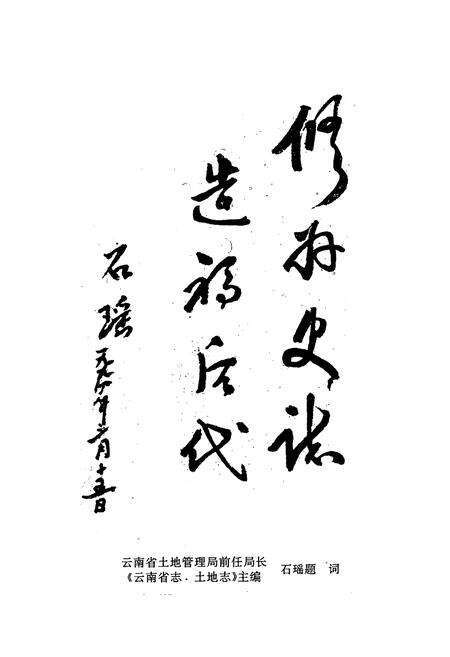 修好史誌
造福后代
石瑶
一九九年月十五日
云南省土地管理局前任局长
《云南省志·土地志》主编
石瑶题 词